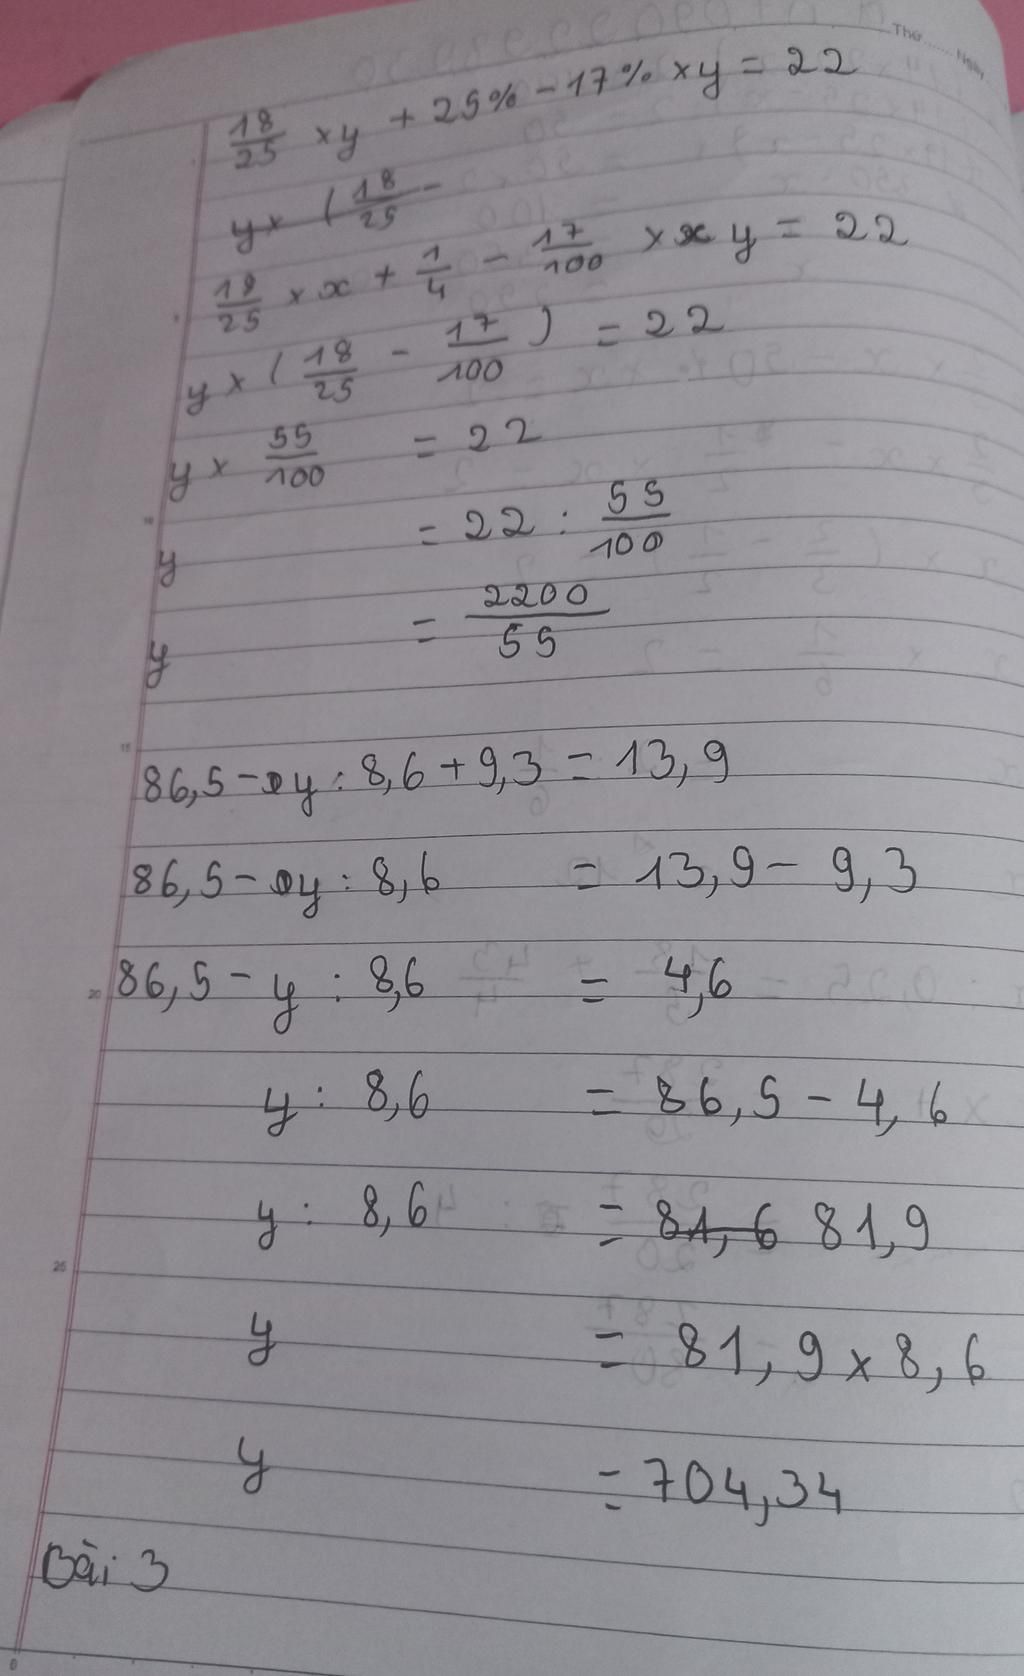 Thứ ...... Ngày
18/25 × y + 25% - 17% × y = 22
y × ( 18/25 -
18/25 × x + 1/4 - 17/100 × x y = 22
y × ( 18/25 - 17/100 ) = 22
y × 55/100 = 22
10
y = 22 : 55/100
y = 2200/55
15
86,5 - y : 8,6 + 9,3 = 13,9
86,5 - y : 8,6 = 13,9 - 9,3
20
86,5 - y : 8,6 = 4,6
y : 8,6 = 86,5 - 4,6
y : 8,6 = 81,6 81,9
25
y = 81,9 × 8,6
y = 704,34
Bài 3
0